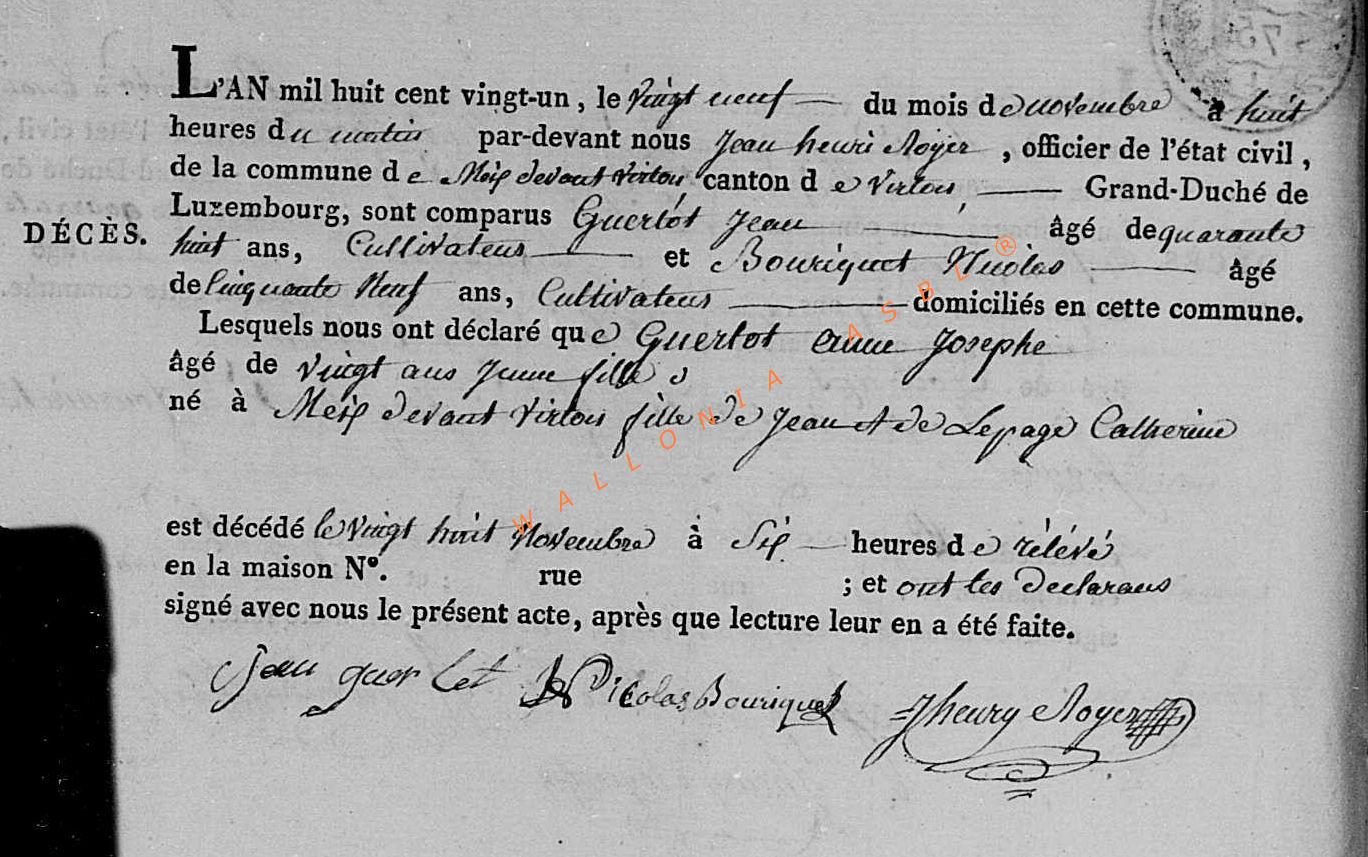 L'AN mil huit cent vingt-un, le vingt neuf du mois de novembre à huit
heures du matin par-devant nous Jean henri Noÿer, officier de l'état civil,
de la commune de Meix devant virton canton de virton, Grand-Duché de
Luxembourg, sont comparus Guerlot Jean âgé de quarante
DÉCÈS.
huit ans, Cultivateur et Bouriquet Nicolas âgé
de Cinquante Neuf ans, Cultivateur domiciliés en cette commune.
Lesquels nous ont déclaré que Guerlot anne Josephe
âgé de vingt ans jeune fille
né à Meix devant virton fille de jean et de Lepage Catherine
est décédé le vingt huit Novembre à Six heures de rélévé
en la maison N°. rue ; et ont les declarans
signé avec nous le présent acte, après que lecture leur en a été faite.
Jean guerlet Nicolas Bouriquet Jhenry Noyer
WALLONIA ASBL ®
75